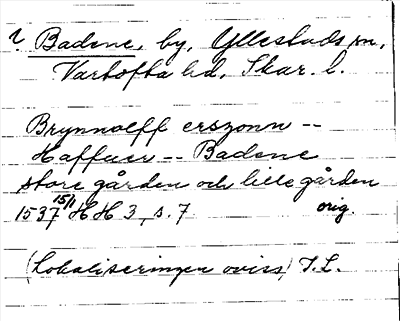 ? Badene, by, Yllestads sn,
Vartofta hd, Skar. l.
Brynnolff erszonn --
Haffuer -- Badene
store gården och lille gården
1537 15/1 HH 3, s. 7 orig.
(Lokaliseringen oviss) I.L.